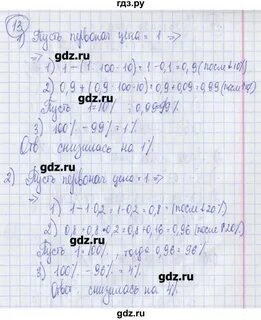 гдз.ру
13
1) Пусть первонач цена = 1 =>
1) 1 - (1·100·10) = 1 - 0,1 = 0,9 (после
2) 0,9 + (0,9·100·10) = 0,9 + 0,09 = 0,99 (после
Пусть 1 = 100% : 0,99 = 99%
3) 100% - 99% = 1%
Отв снизилась на 1%
2) Пусть первонач цена = 1 =>
1) 1 - 1·0,2 = 1 - 0,2 = 0,8 - (после ↓20%)
2) 0,8 + 0,8·0,2 = 0,8 + 0,16 = 0,96 (после ↑20%)
Пусть 1 = 100%, тогда 0,96 = 96%
3) 100% - 96% = 4%
Ответ снизилась на 4%
гдз.ру